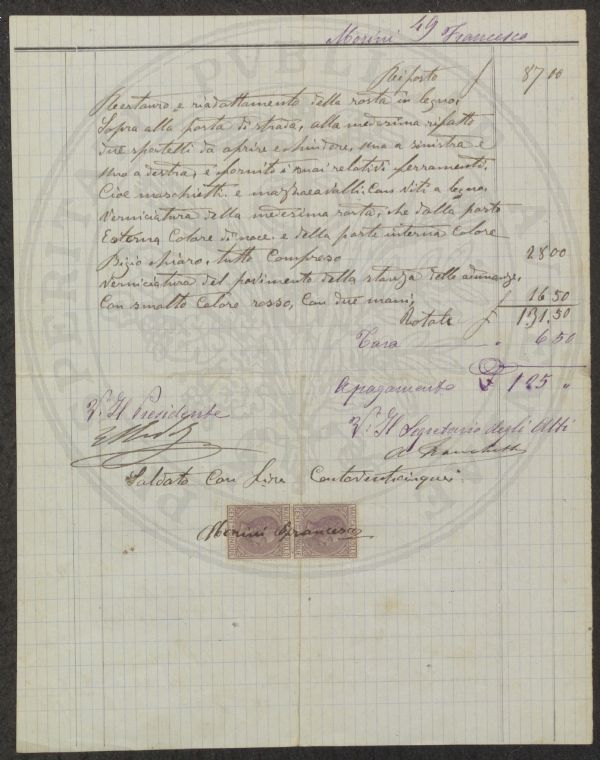 Morini 49 Francesco
Riporto £ 87 00
Restauro, e riadattamento della rosta in legno,
Sopra alla porta di strada, alla medesima rifatto
due sportelli da aprire e chiudere, uno a sinistra e
uno a destra, e fornito i suoi relativi ferramenti,
Cioè maschietti e Con viti a legno,
Verniciatura della medesima rosta, che dalla parte
Esterna Colore di noce. e della parte interna Colore
Bigio chiaro, tutto Compreso 28 00
Verniciatura del pavimento della stanza delle adunanze,
Con smalto Colore rosso, Con due mani, £ 16 50
Totale £ 131.50
Tara " 6 50
A pagamento £ 125 "
V. Il Presidente
V. Il Segretario degli Atti
Saldato Con Lire Centoventicinque
Morini Francesco